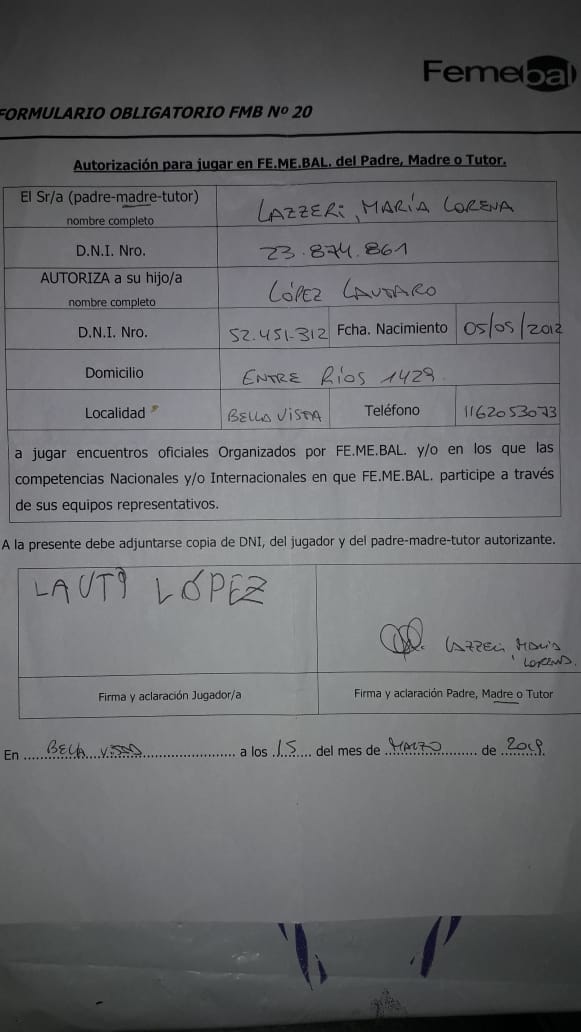 Femebal
FORMULARIO OBLIGATORIO FMB Nº 20
Autorización para jugar en FE.ME.BAL. del Padre, Madre o Tutor.
El Sr/a (padre-madre-tutor)
nombre completo
LAZZERI, MARÍA LORENA
D.N.I. Nro.
23.874.861
AUTORIZA a su hijo/a
nombre completo
LÓPEZ LAUTARO
D.N.I. Nro. 52.451.312 Fcha. Nacimiento 05/05/2012
Domicilio ENTRE RÍOS 1429
Localidad BELLA VISTA Teléfono 1162053073
a jugar encuentros oficiales Organizados por FE.ME.BAL. y/o en los que las
competencias Nacionales y/o Internacionales en que FE.ME.BAL. participe a través
de sus equipos representativos.
A la presente debe adjuntarse copia de DNI, del jugador y del padre-madre-tutor autorizante.
LAUTI LÓPEZ
LAZZERI MARIA
LORENA.
Firma y aclaración Jugador/a
Firma y aclaración Padre, Madre o Tutor
En BELLA VISTA a los 15 del mes de MARZO de 2019